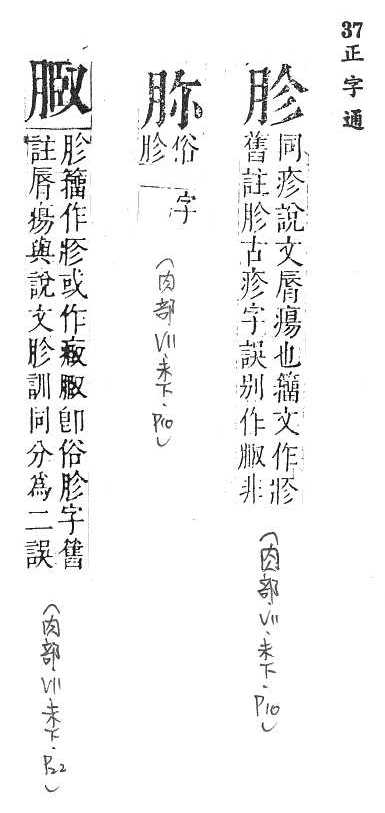 37 正字通
胗
同疹說文脣瘍也籀文作
舊註胗古疹字誤別作非
（肉部 VII・未下・P10）
俗字
胗
（肉部 VII・未下・P10）
胗籀作或作卽俗胗字舊
註脣瘍與說文胗訓同分為二誤
（肉部 VII・未下・P22）